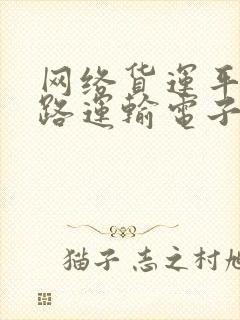 网络货运平
路運輸電子
猫子 志之村旭